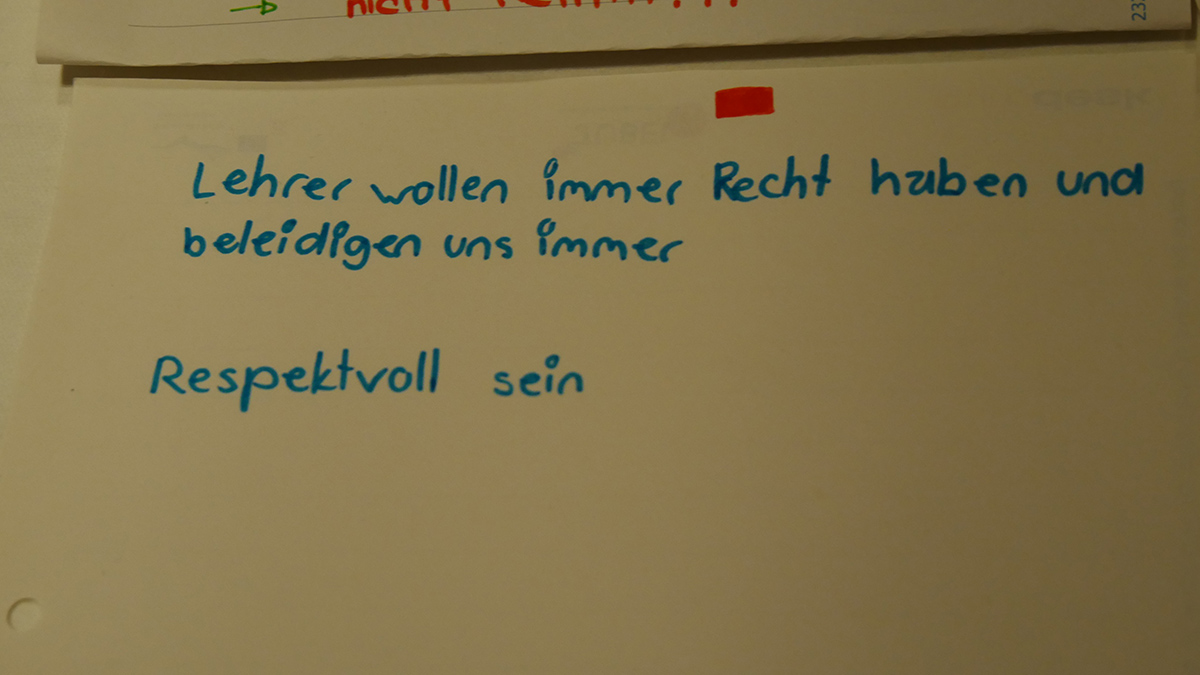 nicht
Lehrer wollen immer Recht haben und
beleidigen uns immer
Respektvoll sein